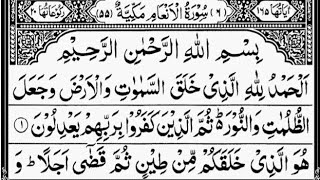 اٰیَاتُهَا ۱۶۵ (۶) سُوْرَةُ الْاَنْعَامِ مَكِّیَّةٌ (۵۵) رُكُوْعَاتُهَا ۲۰
بِسْمِ اللّٰهِ الرَّحْمٰنِ الرَّحِیْمِ
اَلْحَمْدُ لِلّٰهِ الَّذِیْ خَلَقَ السَّمٰوٰتِ وَالْاَرْضَ وَجَعَلَ
الظُّلُمٰتِ وَالنُّوْرَ۬ؕ ثُمَّ الَّذِیْنَ كَفَرُوْا بِرَبِّهِمْ یَعْدِلُوْنَ ۝۱
هُوَ الَّذِیْ خَلَقَكُمْ مِّنْ طِیْنٍ ثُمَّ قَضٰۤی اَجَلًا ؕ وَ